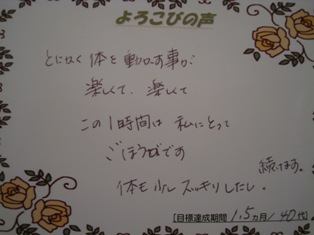 よろこびの声
とにかく体を動かす事が
楽しくて、楽しくて
この1時間は私にとって
ごほうびです
続けます。
体も少しスッキリしたし。
【目標達成期間 1.5ヵ月/40代】